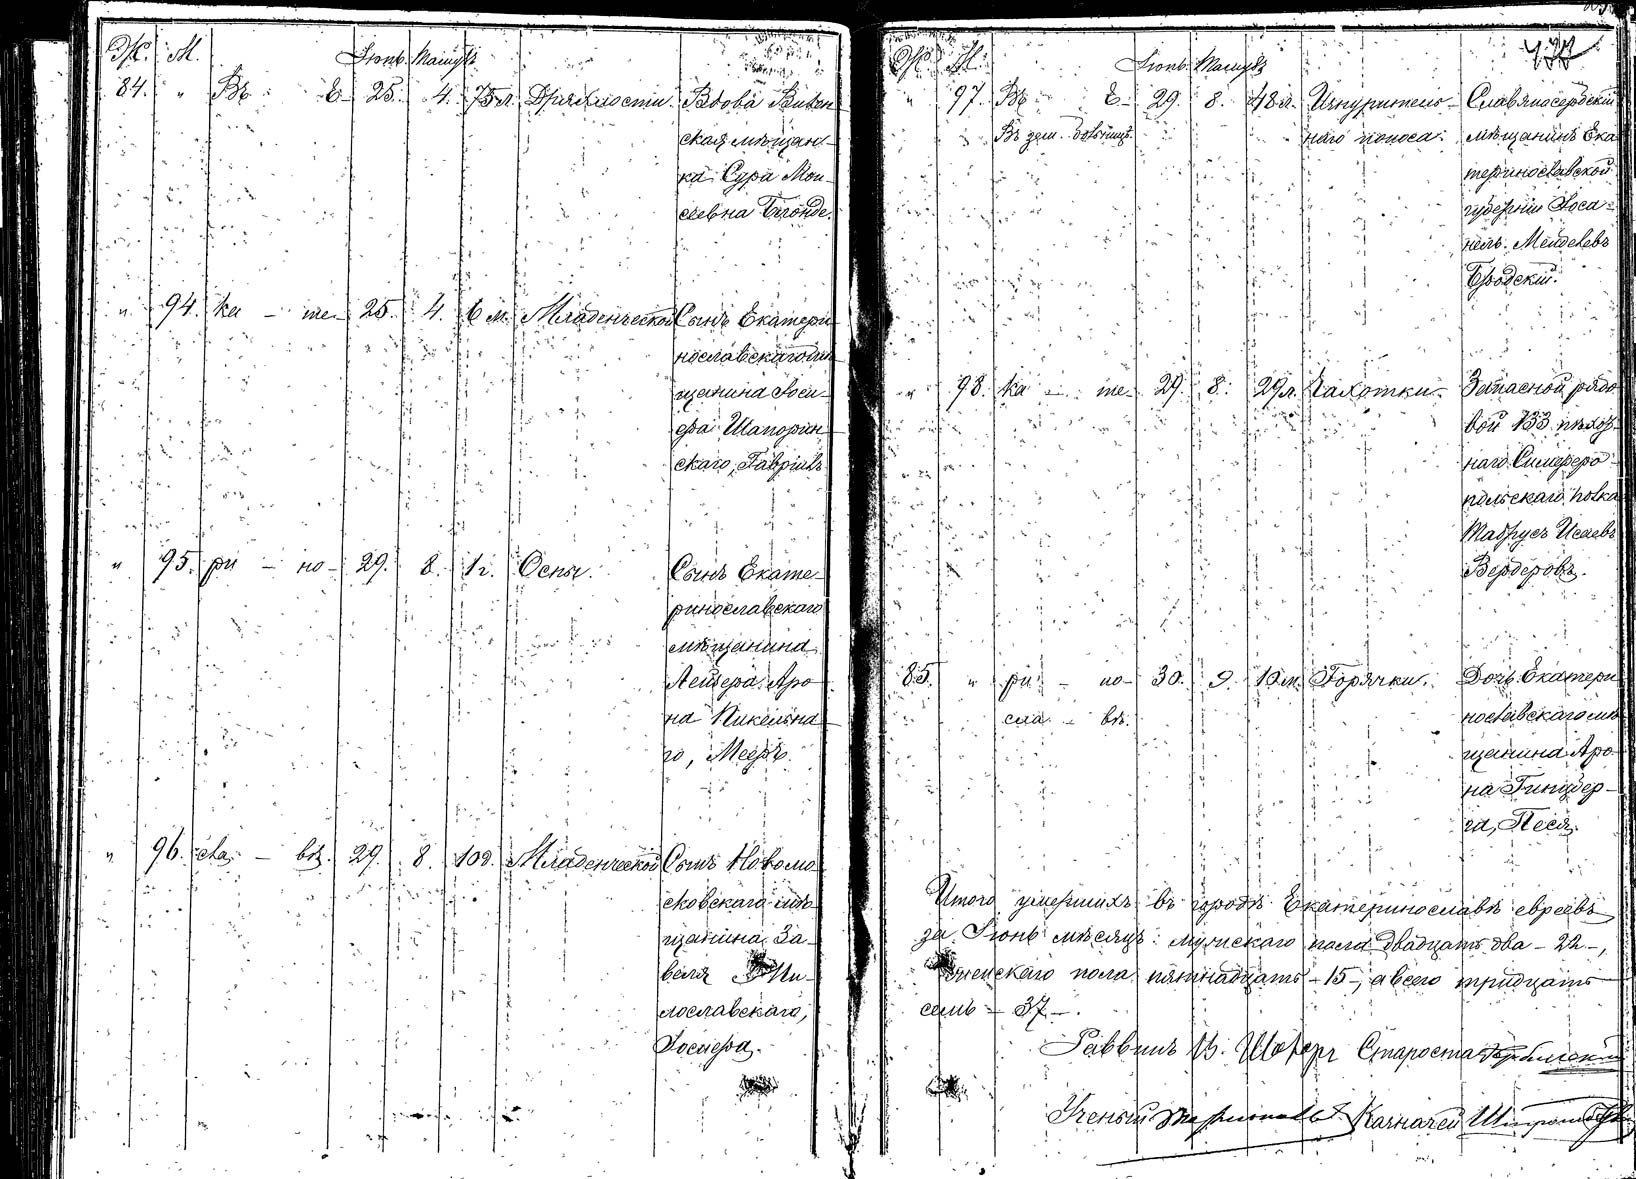 Ж. М. Іюнь. Тамузъ
84. " Въ Е- 25. 4. 75 л. Дряхлости. Вдова Вилен-
ская мѣщан-
ка Сура Мои-
сеевна Блонде.
" 94. ка - те- 25. 4. 6 м. Младенческой Сынъ Екатери-
нославскаго мѣ-
щанина Іоси-
фа Шапорин-
скаго, Гавріилъ
" 95. ри - но- 29. 8. 1 г. Оспы. Сынъ Екате-
ринославскаго
мѣщанина
Лейзера Аро-
на Пикельна-
го, Мееръ.
" 96. сла - вѣ. 29. 8. 10 д. Младенческой Сынъ Новомо-
сковскаго мѣ-
щанина За-
веля Ми-
лославскаго,
Іосифа.
Ж. М. Іюнь. Тамузъ
" 97. Въ Е- 29. 8. 48 л. Изнуритель- Славяносербскій
Въ зем. больницѣ. наго поноса. мѣщанинъ Ека-
теринославской
губерніи Іоса-
нель. Мендел­евъ
Бродскій.
" 98. ка - те- 29. 8. 29 л. Чахотки. Запасной рядо-
вой 133 пѣхот-
наго Симферо-
польскаго полка
Исаевъ
Вердеровъ.
85. " ри - но- 30. 9. 10 м. Горячки. Дочь Екатери-
сла - вѣ. нославскаго мѣ-
щанина Аро-
на Гинцбер-
га, Песя.
Итого умершихъ въ городѣ Екатеринославѣ евреевъ
за Іюнь мѣсяцъ: мужскаго пола двадцать два - 22 -,
женскаго пола пятнадцать - 15 -, а всего тридцать
семь - 37 -.
Раввинъ В. Шохоръ Староста
Ученый Казначей